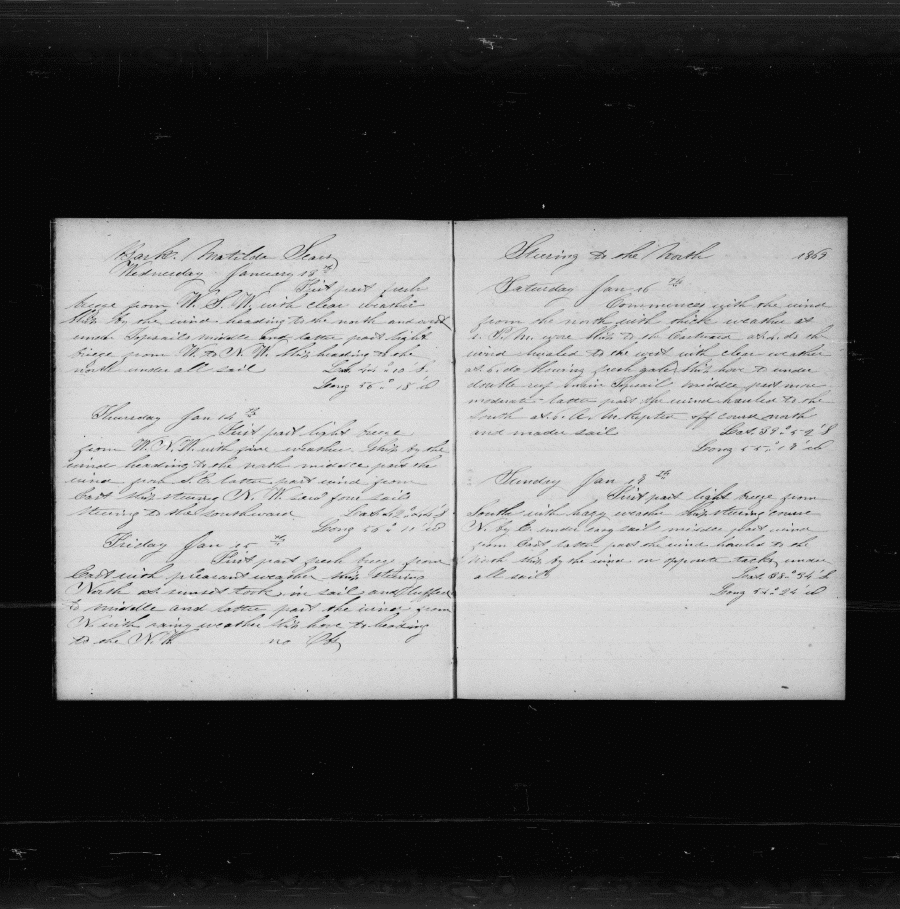 Bark Matilda Sears
Wednesday January 13th
First part fresh
breeze from W. S. W. with clear weather
Ship by the wind heading to the north and west
under Topsails middle and latter part light
breeze from W. to N. W. Ship heading to the
north under all sail Lat 10' S.
Long 56° 18' W
Thursday Jan 14th
First part light breeze
from W. N. W. with fine weather. Ship by the
wind heading to the north middle part the
wind from S. E. latter part wind from
East ship steering N. W. saw four sails
steering to the southward Lat
Long 56° 11' W
Friday Jan 15th
First part fresh breeze from
East with pleasant weather ship steering
North at sunset took in sail and luffed
to middle and latter part the wind from
N with rainy weather Ship hove to heading
to the N. W. no Ob
Steering to the North 1869
Saturday Jan 16th
Commences with the wind
from the north with thick weather at
P. M. wore Ship to the Eastward at 4 do the
wind hauled to the west with clear weather
at 6 do blowing fresh gale ship hove to under
double reef main Topsail middle part more
moderate latter part the wind hauled to the
South at 6 A. M. kept off course north
and made sail Lat. 39° 59' S
Long 55° 18' W
Sunday Jan th
First part light breeze from
South with hazy weather Ship steering course
N. by E. under easy sail middle part wind
from East latter part the wind hauled to the
North ship by the wind on opposite tacks under
all sail Lat 38° 34' S
Long 54° 24' W